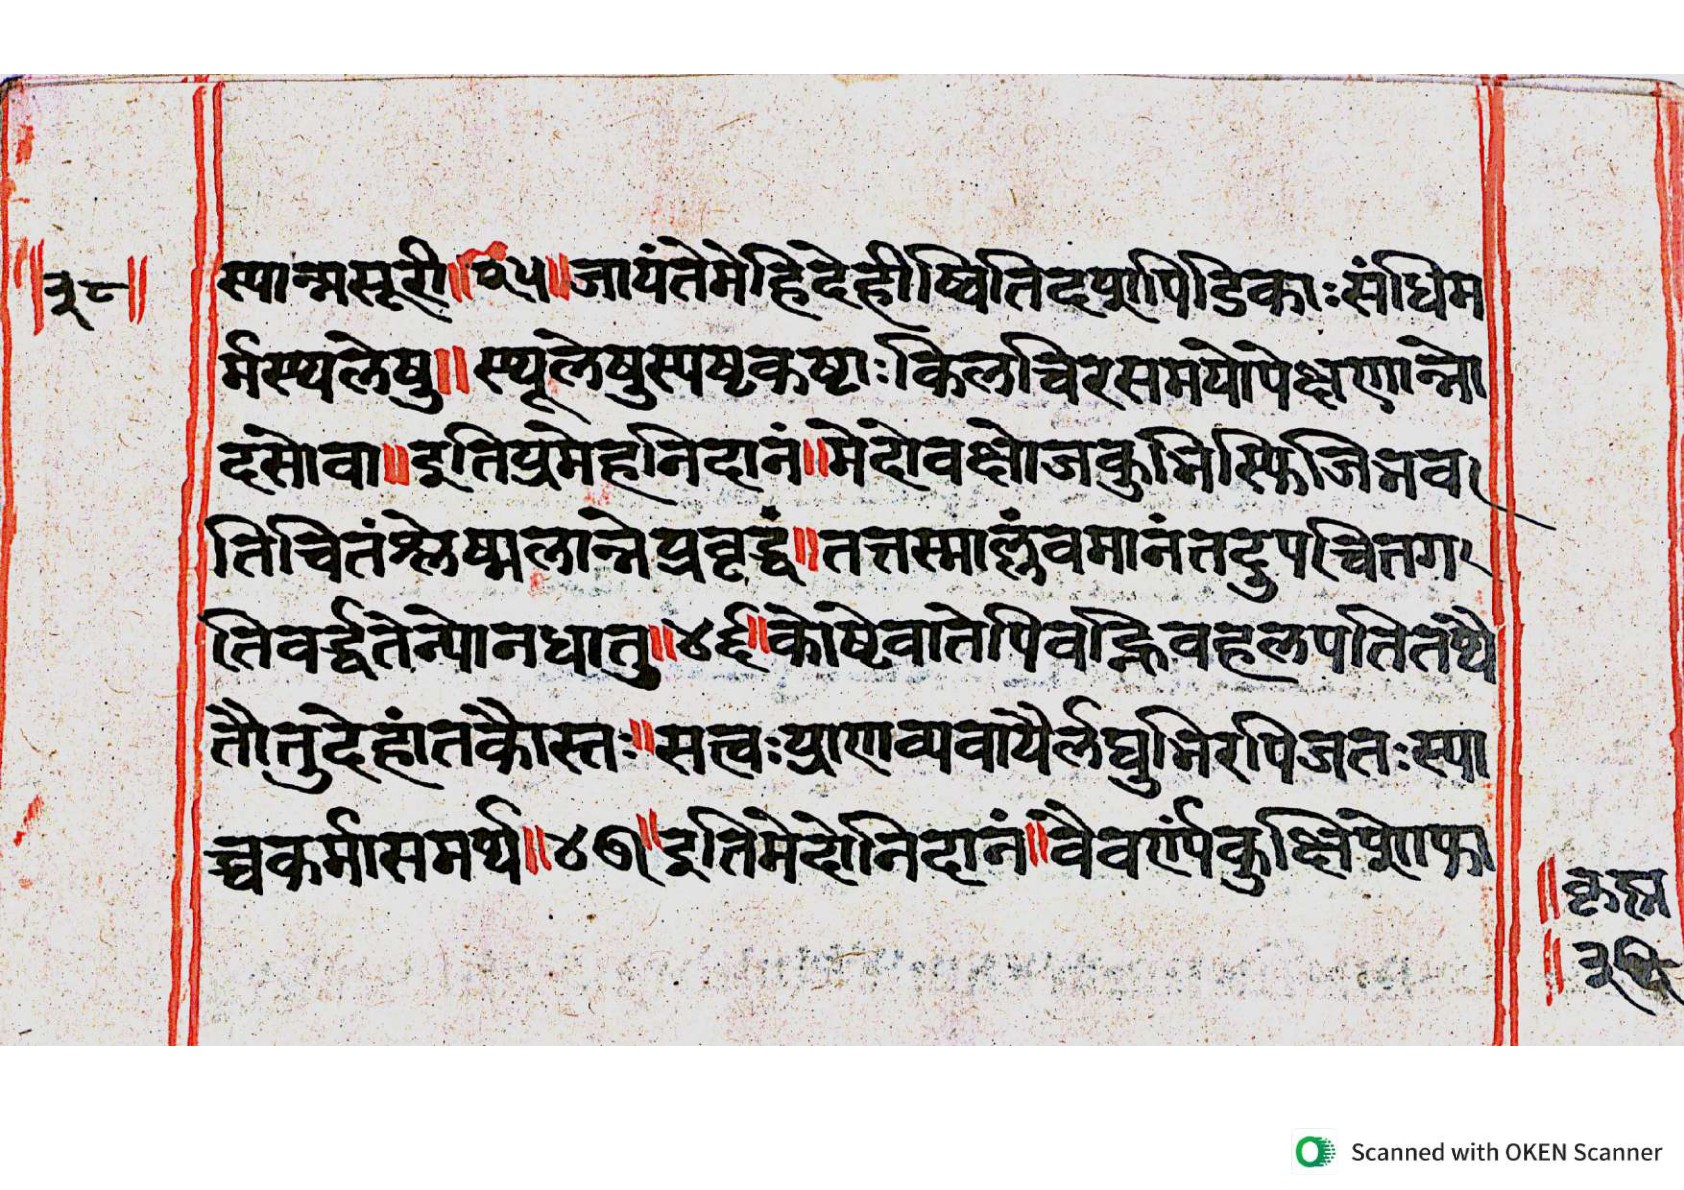 ॥३८॥
स्यान्मसूरी॥३५॥जायंतेमेहिदेहीष्वितिदपुरापिडिकाःसंधिम
र्मस्थलेषु॥स्थूलेषुस्पष्टकष्टाःकिलचिरसमयोपेक्षणान्मे
दसोवा॥इतिप्रमेहनिदानं॥मेदोवक्षोजकुभिस्फिजिभव
तिचितंश्लेष्मलान्नेप्रवृद्धं॥तत्तस्माल्लंवमानंतदुपचितग
तिवर्द्धतेन्योनधातु॥४६॥कोष्टेवातेपिवह्निवहलपतितथै
तौतुदेहांतकौस्तः॥सत्त्वःप्राणव्यवायैर्लघुभिरपिजतःस्या
च्चकर्मासमर्थ॥४७॥इतिमेदोनिदानं॥वैवर्ण्यकुक्षि
॥
॥
Scanned with OKEN Scanner